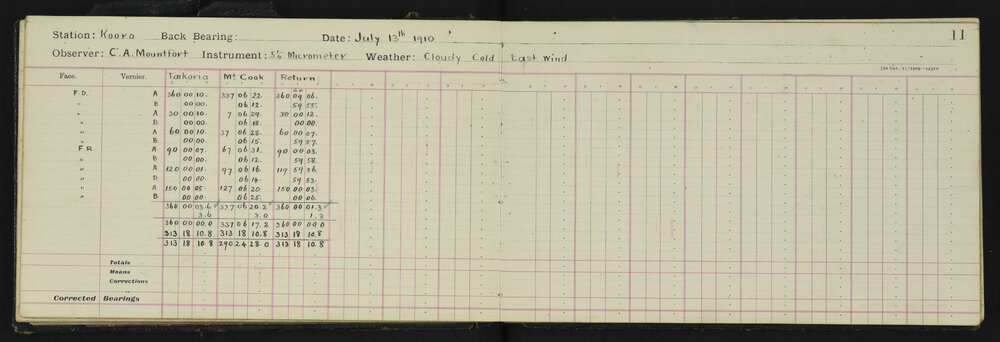 Station: Kooro Back Bearing: Date: July 13th 1910 11
Observer: C.A. Mountfort Instrument: 5in Micrometer Weather: Cloudy Cold East Wind
Face. Vernier. Takoria Mt Cook Return
F.D. A 360 00 10. 337 06 22. 360 00 06.
" B 00 00. 06 12. 59 55.
" A 30 00 10. 7 06 29. 30 00 12.
" B 00 00. 06 18. 00 00.
" A 60 00 10. 37 06 28. 60 00 07.
" B 00 00. 06 15. 59 57.
F R A 90 00 07. 67 06 31. 90 00 03.
" B 00 00. 06 12. 59 58.
" A 120 00 01. 97 06 16. 119 59 56.
" B 00 00. 06 14. 59 53.
" A 150 00 05. 127 06 20. 150 00 03.
" B 00 00. 06 25. 00 06.
360 00 03.6 337 06 20.2 360 00 01.3
3.6 3.0 1.3
360 00 00.0 337 06 17.2 360 00 00.0
313 18 10.8 313 18 10.8 313 18 10.8
313 18 10.8 290 24 28.0 313 18 10.8
Totals
Means
Corrections
Corrected Bearings